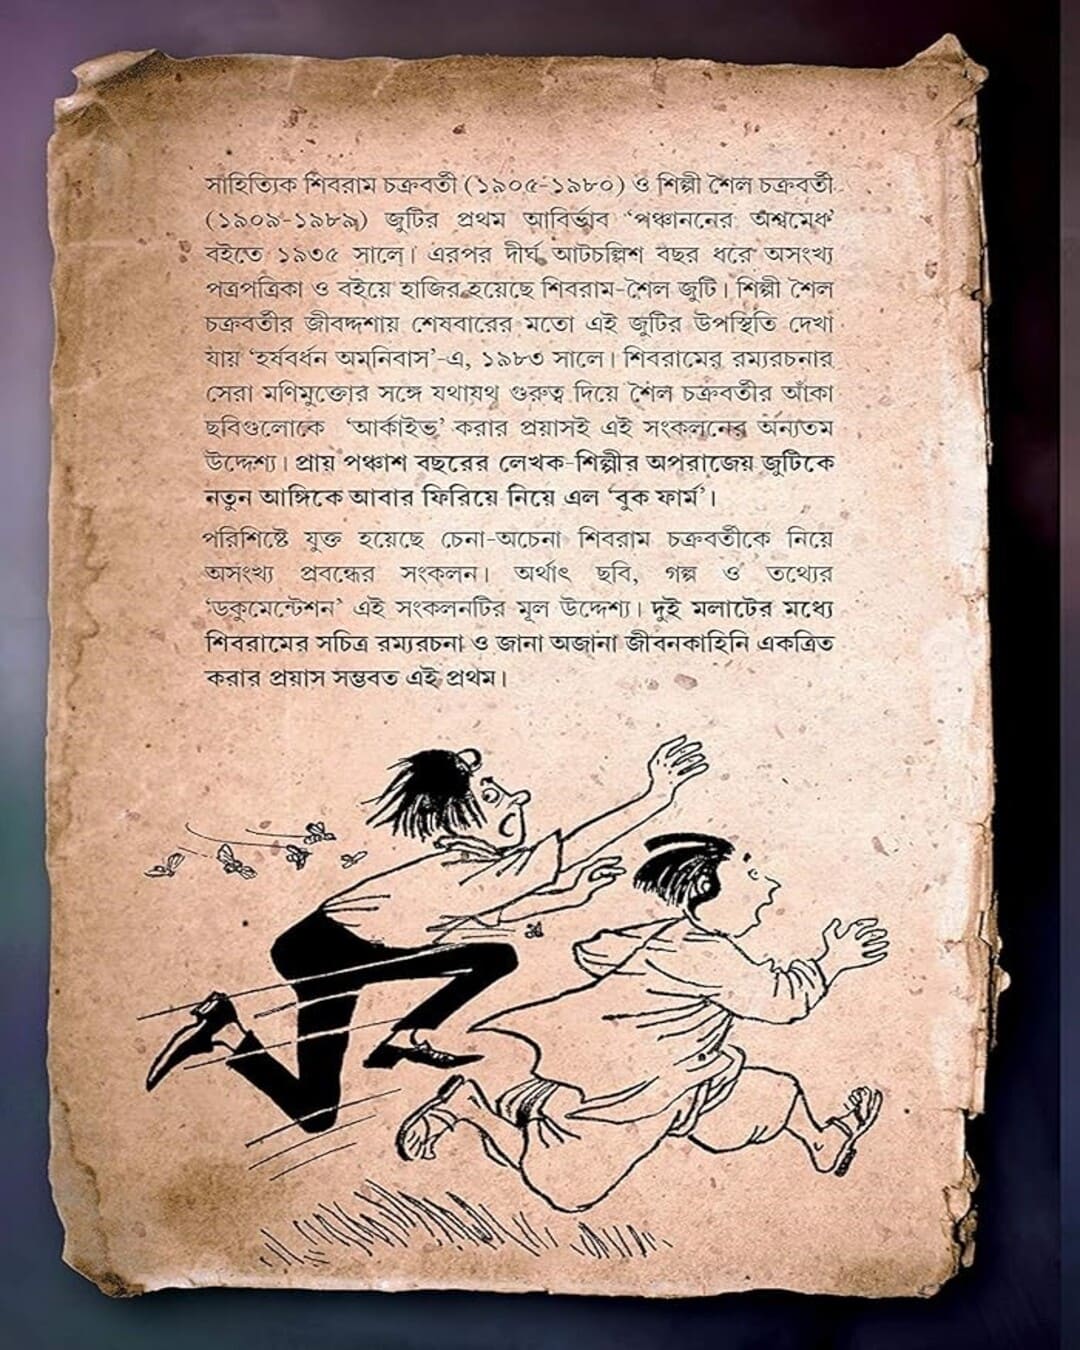 সাহিত্যিক শিবরাম চক্রবর্তী (১৯০৫-১৯৮০) ও শিল্পী শৈল চক্রবর্তী
(১৯০৯-১৯৮৯) জুটির প্রথম আবির্ভাব ‘পঞ্চাননের অশ্বমেধ’
বইতে ১৯৩৫ সালে। এরপর দীর্ঘ আটচল্লিশ বছর ধরে অসংখ্য
পত্রপত্রিকা ও বইয়ে হাজির হয়েছে শিবরাম-শৈল জুটি। শিল্পী শৈল
চক্রবর্তীর জীবদ্দশায় শেষবারের মতো এই জুটির উপস্থিতি দেখা
যায় ‘হর্ষবর্ধন অমনিবাস’-এ, ১৯৮৩ সালে। শিবরামের রম্যরচনার
সেরা মণিমুক্তোর সঙ্গে যথাযথ গুরুত্ব দিয়ে শৈল চক্রবর্তীর আঁকা
ছবিগুলোকে ‘আর্কাইভ’ করার প্রয়াসই এই সংকলনের অন্যতম
উদ্দেশ্য। প্রায় পঞ্চাশ বছরের লেখক-শিল্পীর অপরাজেয় জুটিকে
নতুন আঙ্গিকে আবার ফিরিয়ে নিয়ে এল ‘বুক ফার্ম’।
পরিশিষ্টে যুক্ত হয়েছে চেনা-অচেনা শিবরাম চক্রবর্তীকে নিয়ে
অসংখ্য প্রবন্ধের সংকলন। অর্থাৎ ছবি, গল্প ও তথ্যের
‘ডকুমেন্টেশন’ এই সংকলনটির মূল উদ্দেশ্য। দুই মলাটের মধ্যে
শিবরামের সচিত্র রম্যরচনা ও জানা অজানা জীবনকাহিনি একত্রিত
করার প্রয়াস সম্ভবত এই প্রথম।